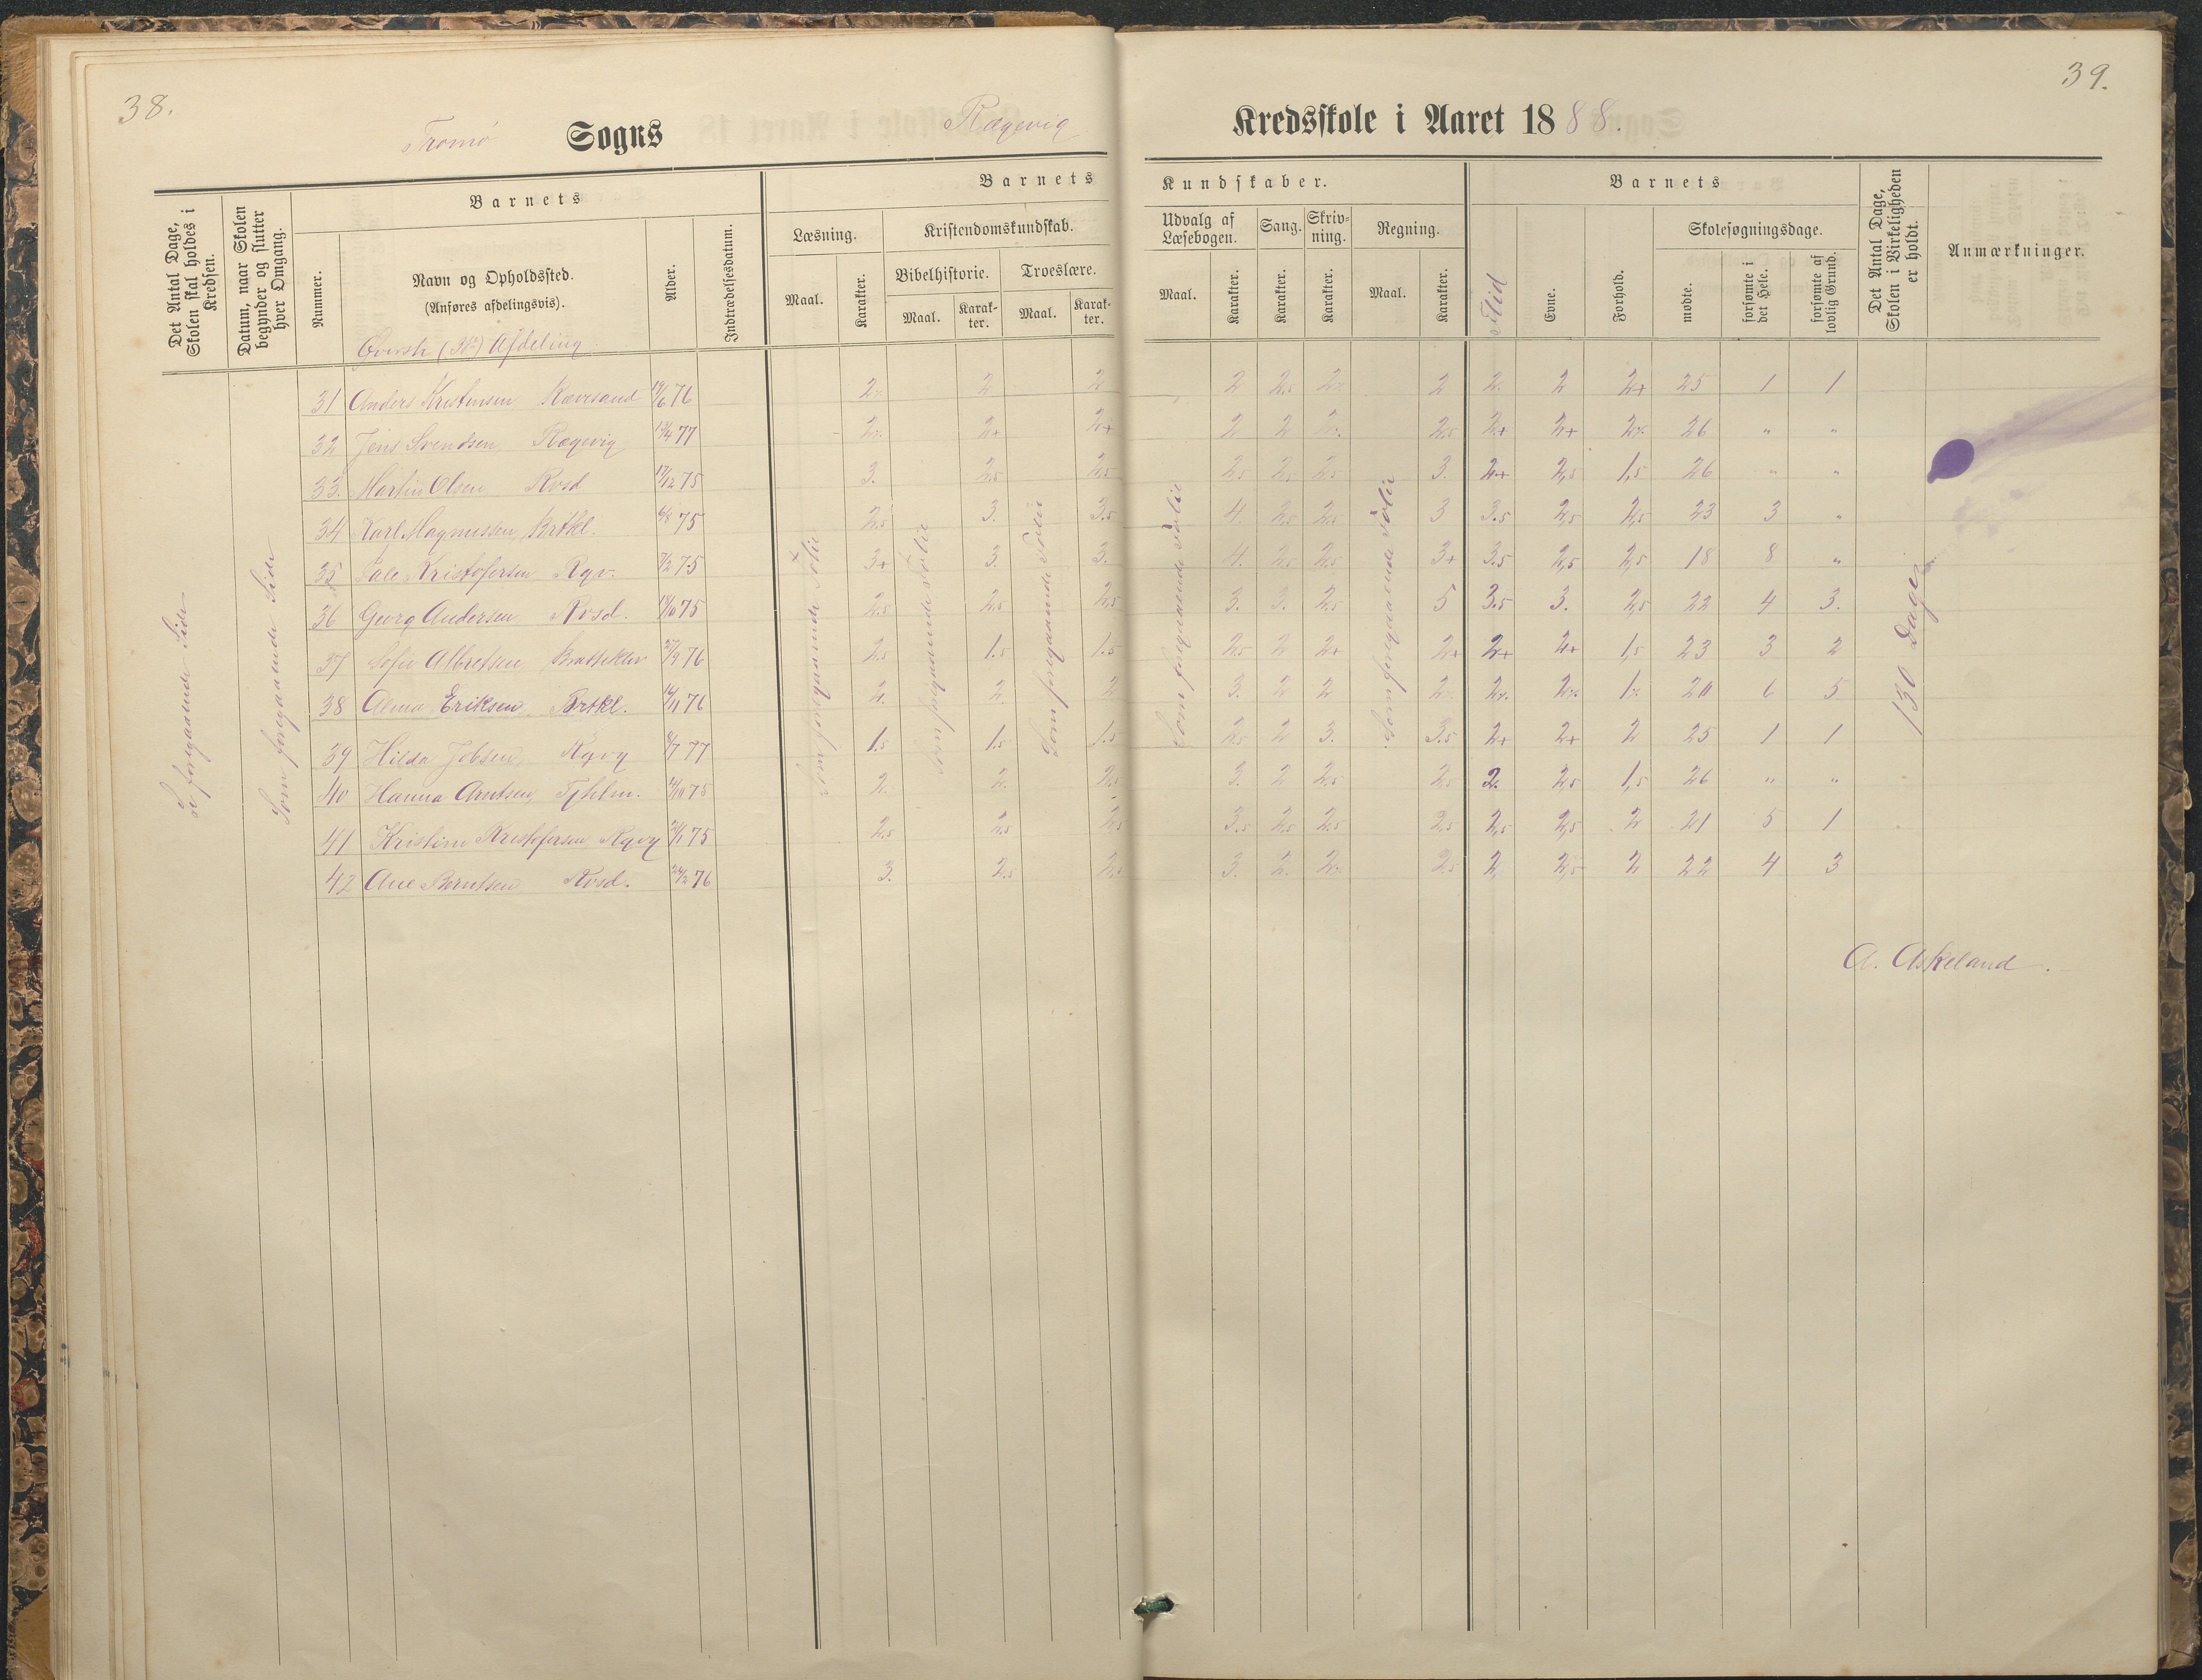 38.
39.
Tromø Sogns Rægevig Kredsskole i Aaret 1888.
Det Antal Dage, Skolen skal holdes i Kredsen.
Datum, naar Skolen begynder og slutter hver Omgang.
Barnets
Nummer.
Navn og Opholdssted.
(Anføres afdelingsvis).
Alder.
Indtrædelsesdatum.
Barnets Kundskaber.
Læsning.
Maal.
Karakter.
Kristendomskundskab.
Bibelhistorie.
Maal.
Karakter.
Troeslære.
Maal.
Karakter.
Udvalg af Læsebogen.
Maal.
Karakter.
Sang.
Karakter.
Skrivning.
Karakter.
Regning.
Maal.
Karakter.
Barnets
Flid
Evne.
Forhold.
Skolesøgningsdage.
mødte.
forsømte i det Hele.
forsømte af lovlig Grund.
Det Antal Dage, Skolen i Virkeligheden er holdt.
Anmærkninger.
Afdeling
Se foregaaende Side
Som foregaaende Side
Som foregaaende Folie
Som foregaaende Folie
Som foregaaende Folie
Som foregaaende Folie
Som foregaaende Folie
130 Dage
31 Anders Kristensen 19/6 76 2 2 2 2 2 2+ 25 1 1
32 Jens Svendsen Rægevig 77 2+ 2+ 2 2 2,5 2+ 2+ 26 " "
33. Martin Olsen Rvsd 17/12 75 3. 2,5 2,5 2,5 2,5 2,5 3. 2+ 2,5 1,5 26 " "
34 Karl Magnussen Brtkl. 6/8 75 2,5 3. 3,5 4. 2,5 2,5 3 3,5 2,5 2,5 23 3 "
35 Tale Kristofersen Rgv. 75 3+ 3. 3. 4. 2,5 2,5 3+ 3,5 2,5 2,5 18 8 "
36 Georg Andersen Rvsd. 75 2,5 2,5 2,5 3. 3. 2,5 5 3,5 3. 2,5 22 4 3.
37 Sofie Albretsen Bratteklev 27/9 76 2,5 1.5 1.5 2,5 2 2+ 2+ 2+ 2+ 1,5 23 3 2
38 Alma Eriksen Brtkl. 76 2. 2. 2 3. 2 2 20 6 5
39 Hilda Jobsen Rgvg 77 1.5 1.5 1.5 2,5 2 3. 3.5 2+ 2+ 2 25 1 1
40 Hanna Arntsen 75 2. 2. 2,5 3. 2 2,5 2,5 2. 2,5 1,5 26 " "
41 Kristine Kristofersen Rgvg 75 2,5 2,5 2,5 3.5 2,5 2,5 2,5 2,5 2,5 2 21 5 1
42 Ane Berntsen Rvsd. 76 3. 2,5 2,5 3. 2. 2,5 2,5 2 22 4 3
A. Askeland.